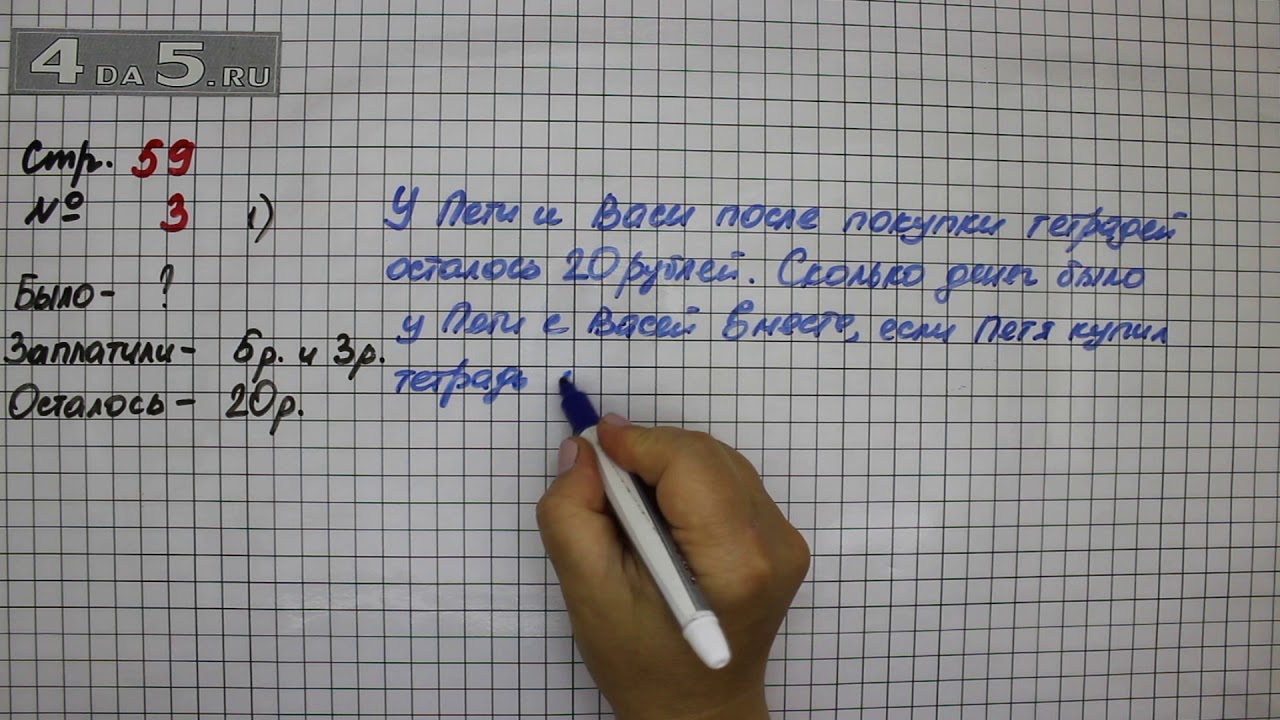 4DA5.RU
Стр. 59
№ 3 1)
Было- ?
Заплатили- 5р. и 3р.
Осталось - 20р.
У Пети и Васи после покупки тетрадей
осталось 20 рублей. Сколько денег было
у Пети с Васей вместе, если Петя купил
тетрадь